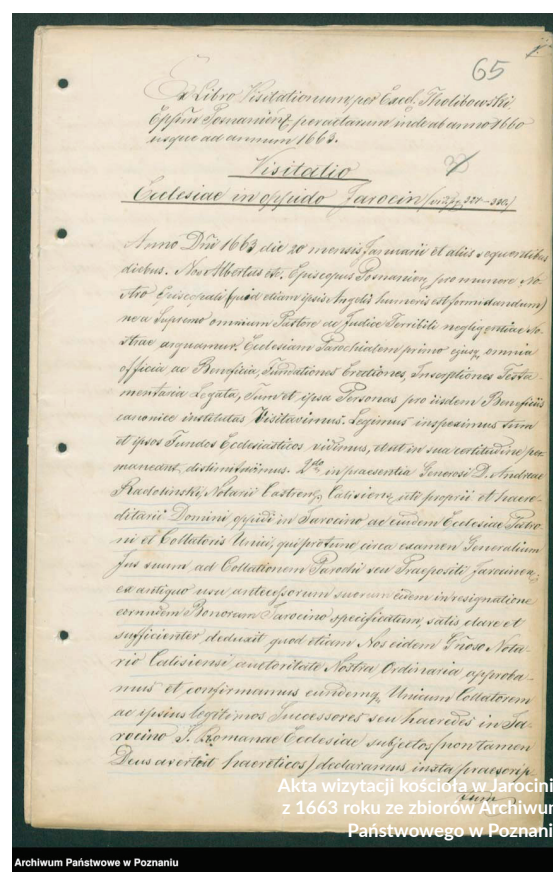 65
Ex Libro Visitationum per Excel. Tholibowski
Eppūm Posnanien. peractarum inde ab anno 1660
usque ad annum 1663.
Visitatio
Ecclesiae in oppido Jarocin
Anno Dni 1663 die 20 mensis Januarii et aliis sequentibus
diebus. Nos Albertus etc. Episcopus Posnanien. pro munere No-
stro Episcopali (quod etiam ipsis Angelis humeris est formidandum)
ne a Supremo omnium Pastore ac Judice Terribili negligentiae No-
strae arguamur. Ecclesiam Parochialem primo ejusq. omnia
officia ac Beneficia, Fundationes Erectiones, Inscriptiones Testa-
mentaria Legata, Tum et ipsa Personas pro iisdem Beneficiis
canonice institutas Visitavimus. Legimus inspeximus tum
et ipsos Fundos Ecclesiasticos vidimus, et ut in sua certitudine per-
maneant, distinximus. 2do in praesentia Generosi D. Andreae
Radolinski, Notarii Castren. Calisien. uti proprii et haere-
ditarii Domini oppidi in Jarocino ac eiudem Ecclesiae Patro-
ni et Collatoris Unici, qui protunc circa examen Generalium
Jus suum ad Collationem Parochi seu Praepositi Jarocinen.
ex antiquo usu antecessorum suorum eidem in resignatione
eorundem Bonorum Jarocino specificatum, satis clare et
sufficienter deduxit quod etiam Nos eidem Gnoso Nota-
rio Calisiensi auctoritate Nostra Ordinaria approba-
mus et confirmamus eundemq. Unicum Collatorem
ac ipsius legitimos Successores seu haeredes in Ja-
rocino S. Romanae Ecclesiae subjectos (non tamen
Deus avertat haereticos) declaramus iuxta praescrip-
tum
Akta wizytacji kościoła w Jarocini
z 1663 roku ze zbiorów Archiwum
Państwowego w Poznani
Archiwum Państwowe w Poznaniu